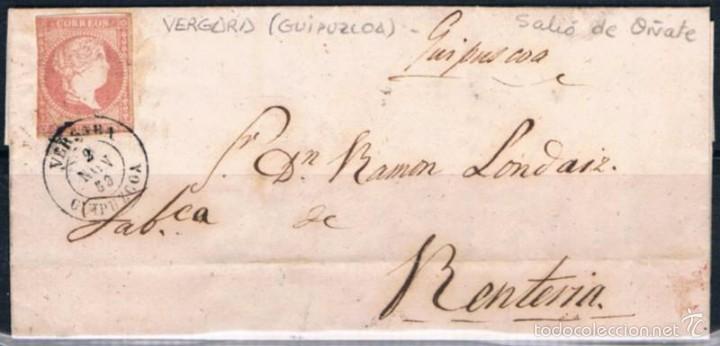 CORREOS
VERGARA (GUIPUZCOA) -
Salió de Oñate
Guipuscoa
VERGARA
2
NOV
GUIPUZCOA
Sr. Dn. Ramon Londaiz.
Fab.ca de
Renteria.
© todocoleccion.net